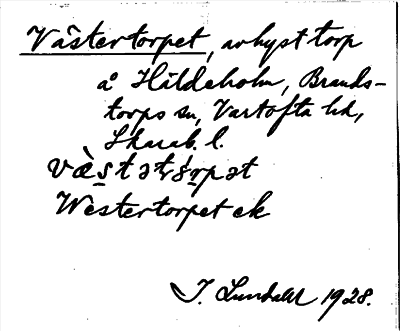 Västertorpet, avhyst torp
å Häldeholm, Brands-
torps sn, Vartofta hd,
Skarab. l.
Westertorpet ek
I. Lundahl 1928.